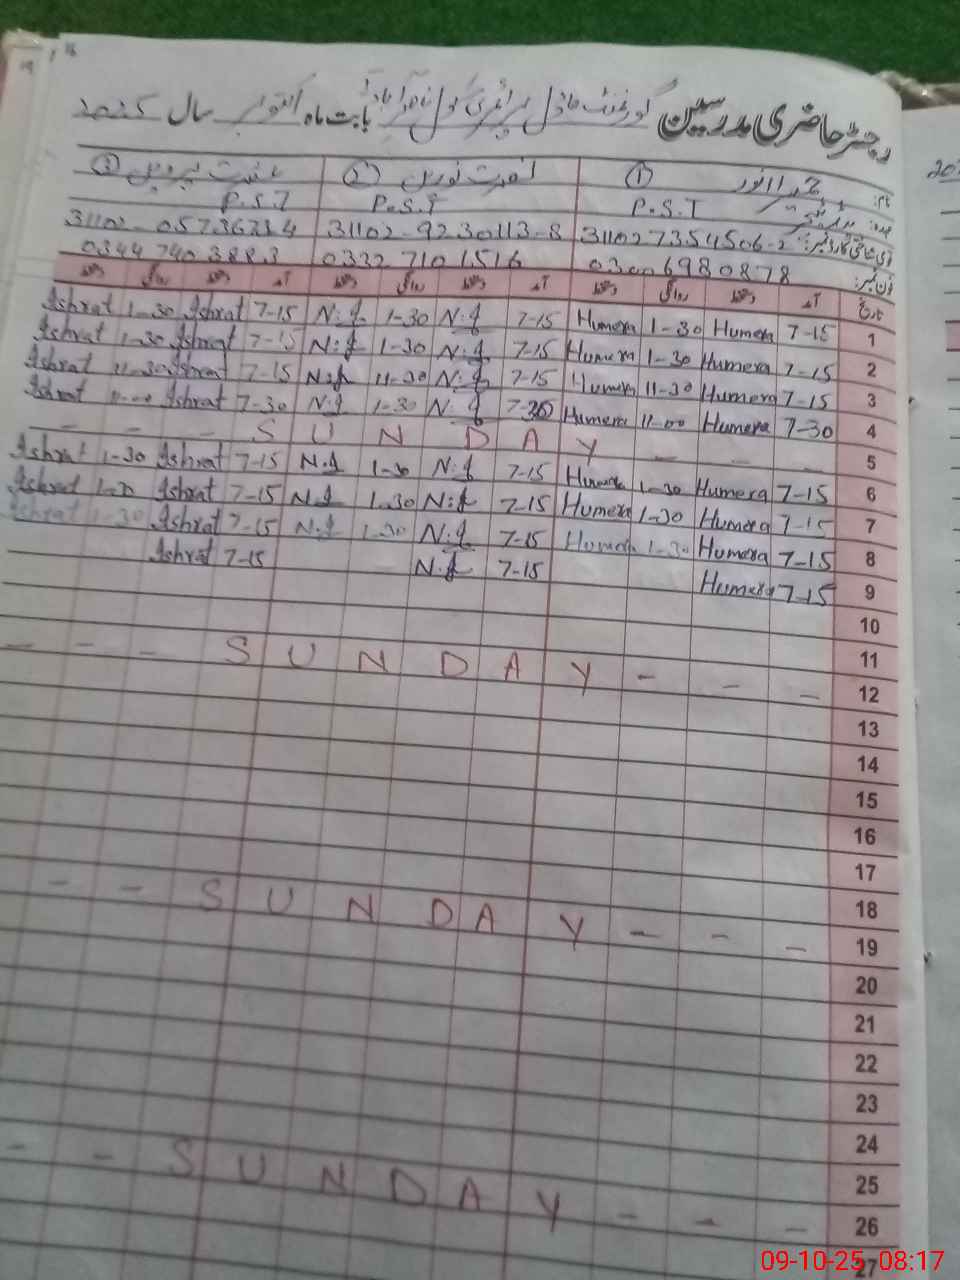 رجسٹر حاضری مدرسین گورنمنٹ ماڈل پرائمری سکول بابت ماہ اکتوبر سال 2025
نام: ① حمیرا انور ② نصرت نورین ③ عشرت پروین
عہدہ: P.S.T P.S.T P.S.T
قومی شناختی کارڈ نمبر: 31102 7354506-2 31102-9230113-8 31102-0573673-4
فون نمبر: 0300 6980878 0332 7101516 0344 740 3883
تاریخ آمد دستخط روانگی دستخط آمد دستخط روانگی دستخط آمد دستخط روانگی دستخط
Ashrat 1-30 Ashrat 7-15 N.f 1-30 N.f 7-15 Humera 1-30 Humera 7-15 1
Ashrat 1-30 Ashrat 7-15 N.f 1-30 N.f 7-15 Humera 1-30 Humera 7-15 2
Ashrat 11-30 Ashrat 7-15 N.f 11-30 N.f 7-15 Humera 11-30 Humera 7-15 3
Ashrat Ashrat 7-30 N.f 1-30 N.f 7-30 Humera 11-00 Humera 7-30 4
- - - S U N D A Y - - - 5
Ashrat 1-30 Ashrat 7-15 N.f 1-30 N.f 7-15 Humera 1-30 Humera 7-15 6
Ashrat Ashrat 7-15 N.f 1-30 N.f 7-15 Humera 1-30 Humera 7-15 7
Ashrat 1-30 Ashrat 7-15 N.f 1-30 N.f 7-15 Humera 1-30 Humera 7-15 8
Ashrat 7-15 N.f 7-15 Humera 7-15 9
10
11
- - - S U N D A Y - - - 12
13
14
15
16
17
18
- - S U N D A Y - - - 19
20
21
22
23
24
25
- - S U N D A Y - - - 26
27
09-10-25 08:17